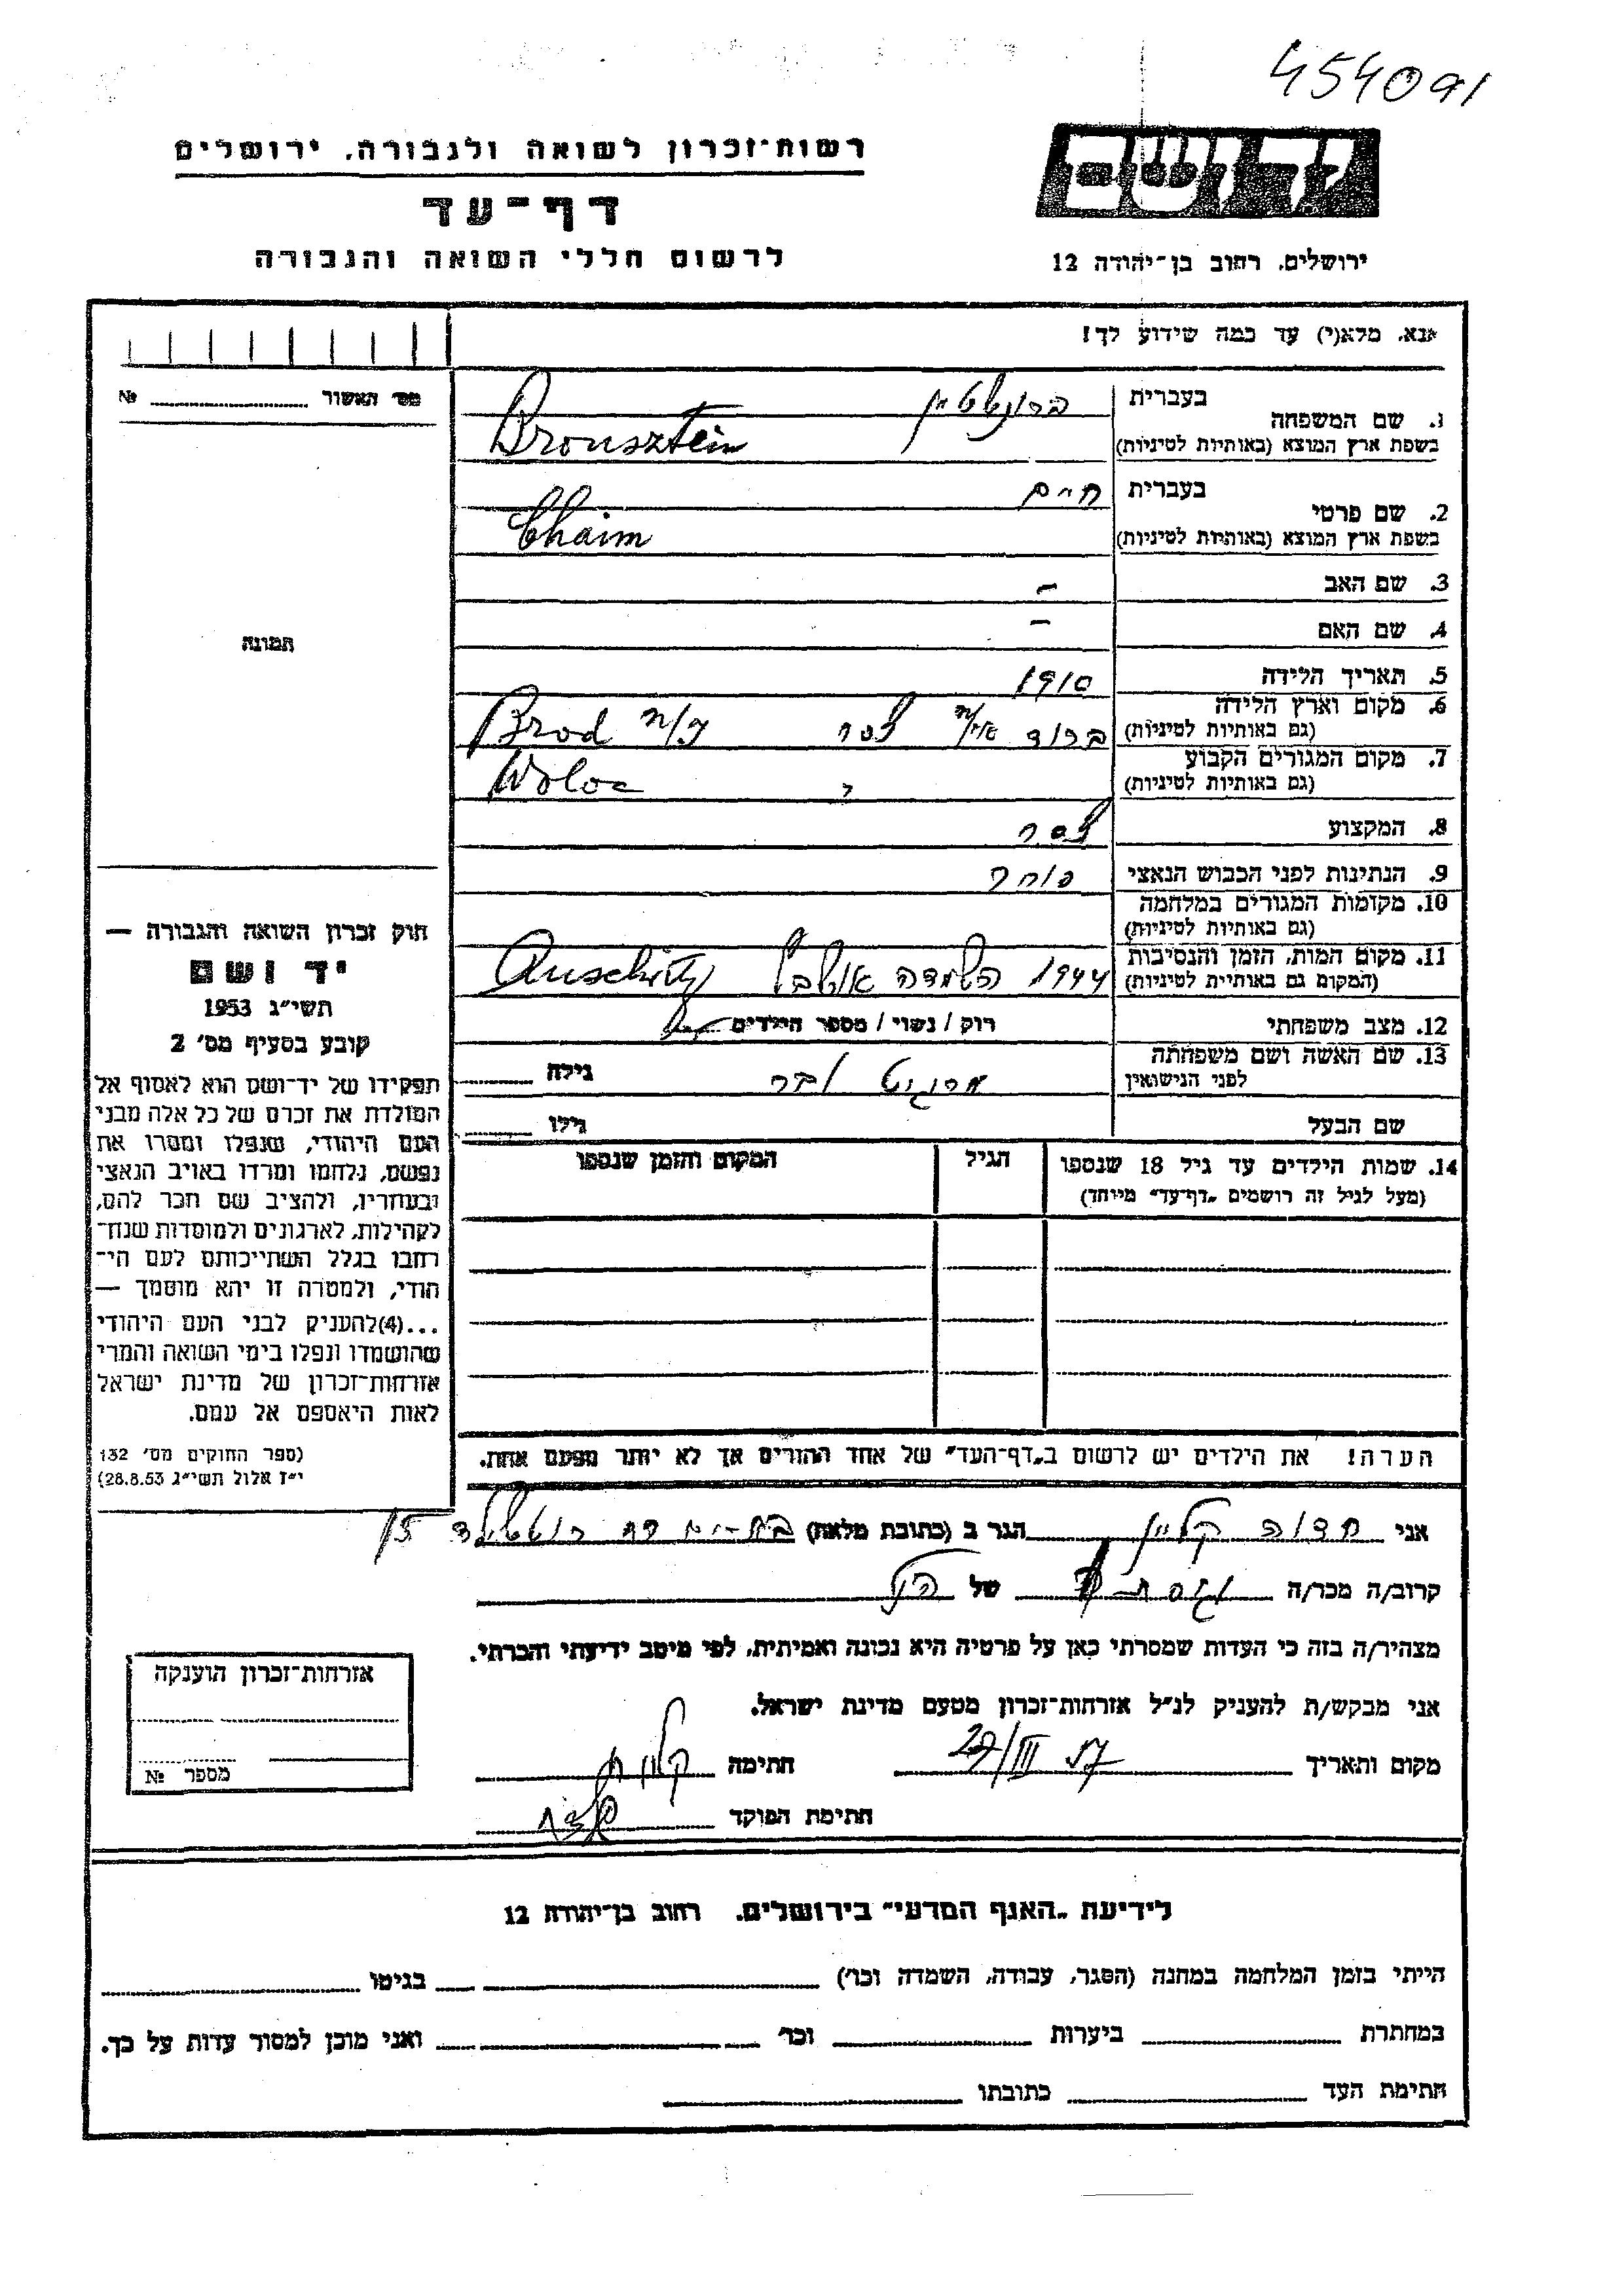 454091
רשות־זכרון לשואה ולגבורה, ירושלים
דף־עד
לרשום חללי השואה והגבורה
יד ושם
ירושלים, רחוב בן־יהודה 12
אנא, מלא(י) עד כמה שידוע לך!
מס׳ האשור № 
1. שם המשפחה
בעברית
ברונשטיין
בשפת ארץ המוצא (באותיות לטיניות)
Bronsztein
2. שם פרטי
בעברית
חיים
בשפת ארץ המוצא (באותיות לטיניות)
Chaim
3. שם האב –
4. שם האם –
תמונה
5. תאריך הלידה 1910
6. מקום וארץ הלידה
(גם באותיות לטיניות)
ברוד Brod
7. מקום המגורים הקבוע
(גם באותיות לטיניות)
8. המקצוע
9. הנתינות לפני הכבוש הנאצי
10. מקומות המגורים במלחמה
(גם באותיות לטיניות)
11. מקום המות, הזמן והנסיבות
(המקום גם באותיות לטיניות)
1944 השמדה
12. מצב משפחתי
רוק / נשוי / מספר הילדים
13. שם האשה ושם משפחתה
לפני הנישואין
גילה
שם הבעל
גילו
14. שמות הילדים עד גיל 18 שנספו
(מעל לגיל זה רושמים „דף־עד״ מיוחד)
הגיל
המקום והזמן שנספו
הערה! את הילדים יש לרשום ב„דף־העד״ של אחד ההורים אך לא יותר מפעם אחת.
חוק זכרון השואה והגבורה —
יד ושם
תשי״ג 1953
קובע בסעיף מס׳ 2
תפקידו של יד־ושם הוא לאסוף אל
המולדת את זכרם של כל אלה מבני
העם היהודי, שנפלו ומסרו את
נפשם, נלחמו ומרדו באויב הנאצי
ובעוזריו, ולהציב שם וזכר להם,
לקהילות, לארגונים ולמוסדות שנח־
רחבו בגלל השתייכותם לעם הי־
הודי, ולמטרה זו יהא מוסמך —
...(4)להעניק לבני העם היהודי
שהושמדו ונפלו בימי השואה והמרי
אזרחות־זכרון של מדינת ישראל
לאות היאספם אל עמם.
(ספר החוקים מס׳ 132
י״ז אלול תשי״ג 28.8.53)
אני חדוה קליין הגר ב (כתובת מלאה) בת־ים רח רוטשילד 15
קרוב/ה מכר/ה של הנ״ל
מצהיר/ה בזה כי העדות שמסרתי כאן על פרטיה היא נכונה ואמיתית, לפי מיטב ידיעתי והכרתי.
אני מבקש/ת להעניק לנ״ל אזרחות־זכרון מטעם מדינת ישראל.
מקום ותאריך חתימה
חתימת הפוקד
אזרחות־זכרון הוענקה
מספר №
לידיעת „האגף המדעי״ בירושלים, רחוב בן־יהודה 12
הייתי בזמן המלחמה במחנה (הסגר, עבודה, השמדה וכו׳) בגיטו
במחתרת ביערות וכו׳ ואני מוכן למסור עדות על כך.
חתימת העד כתובתו